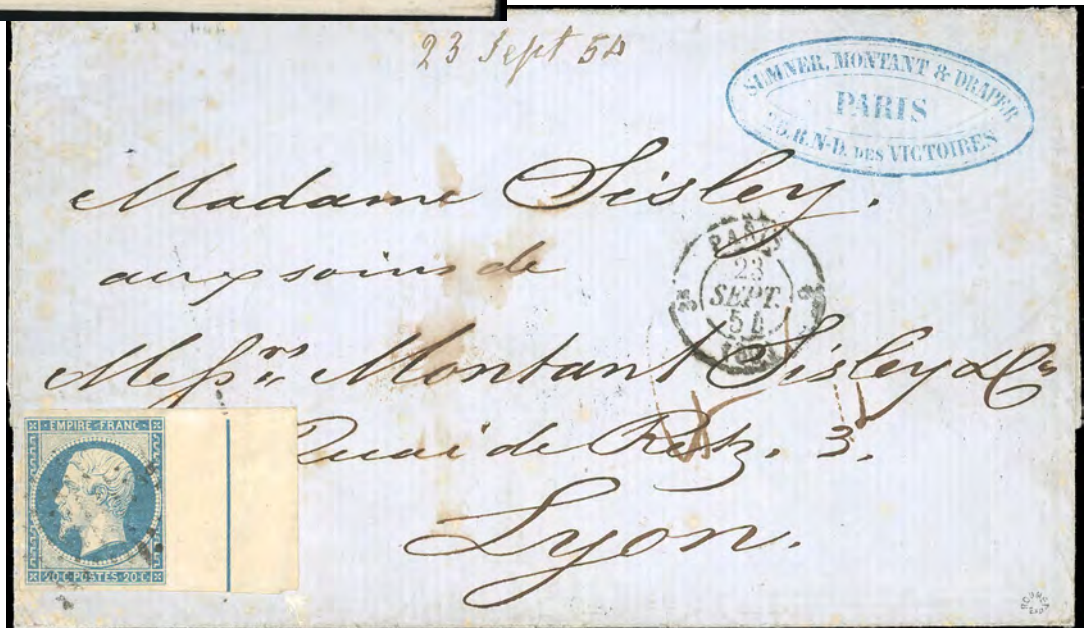 23 Sept 54
SUMNER, MONTANT & DRAPER
PARIS
R. N-D. DES VICTOIRES
Madame Sisley.
PARIS
23
SEPT.
54
aux soins de
Messrs Montant Sisley & Co
Quai de Retz. 3.
Lyon.
EMPIRE-FRANC-
20-C-POSTES-20-C-